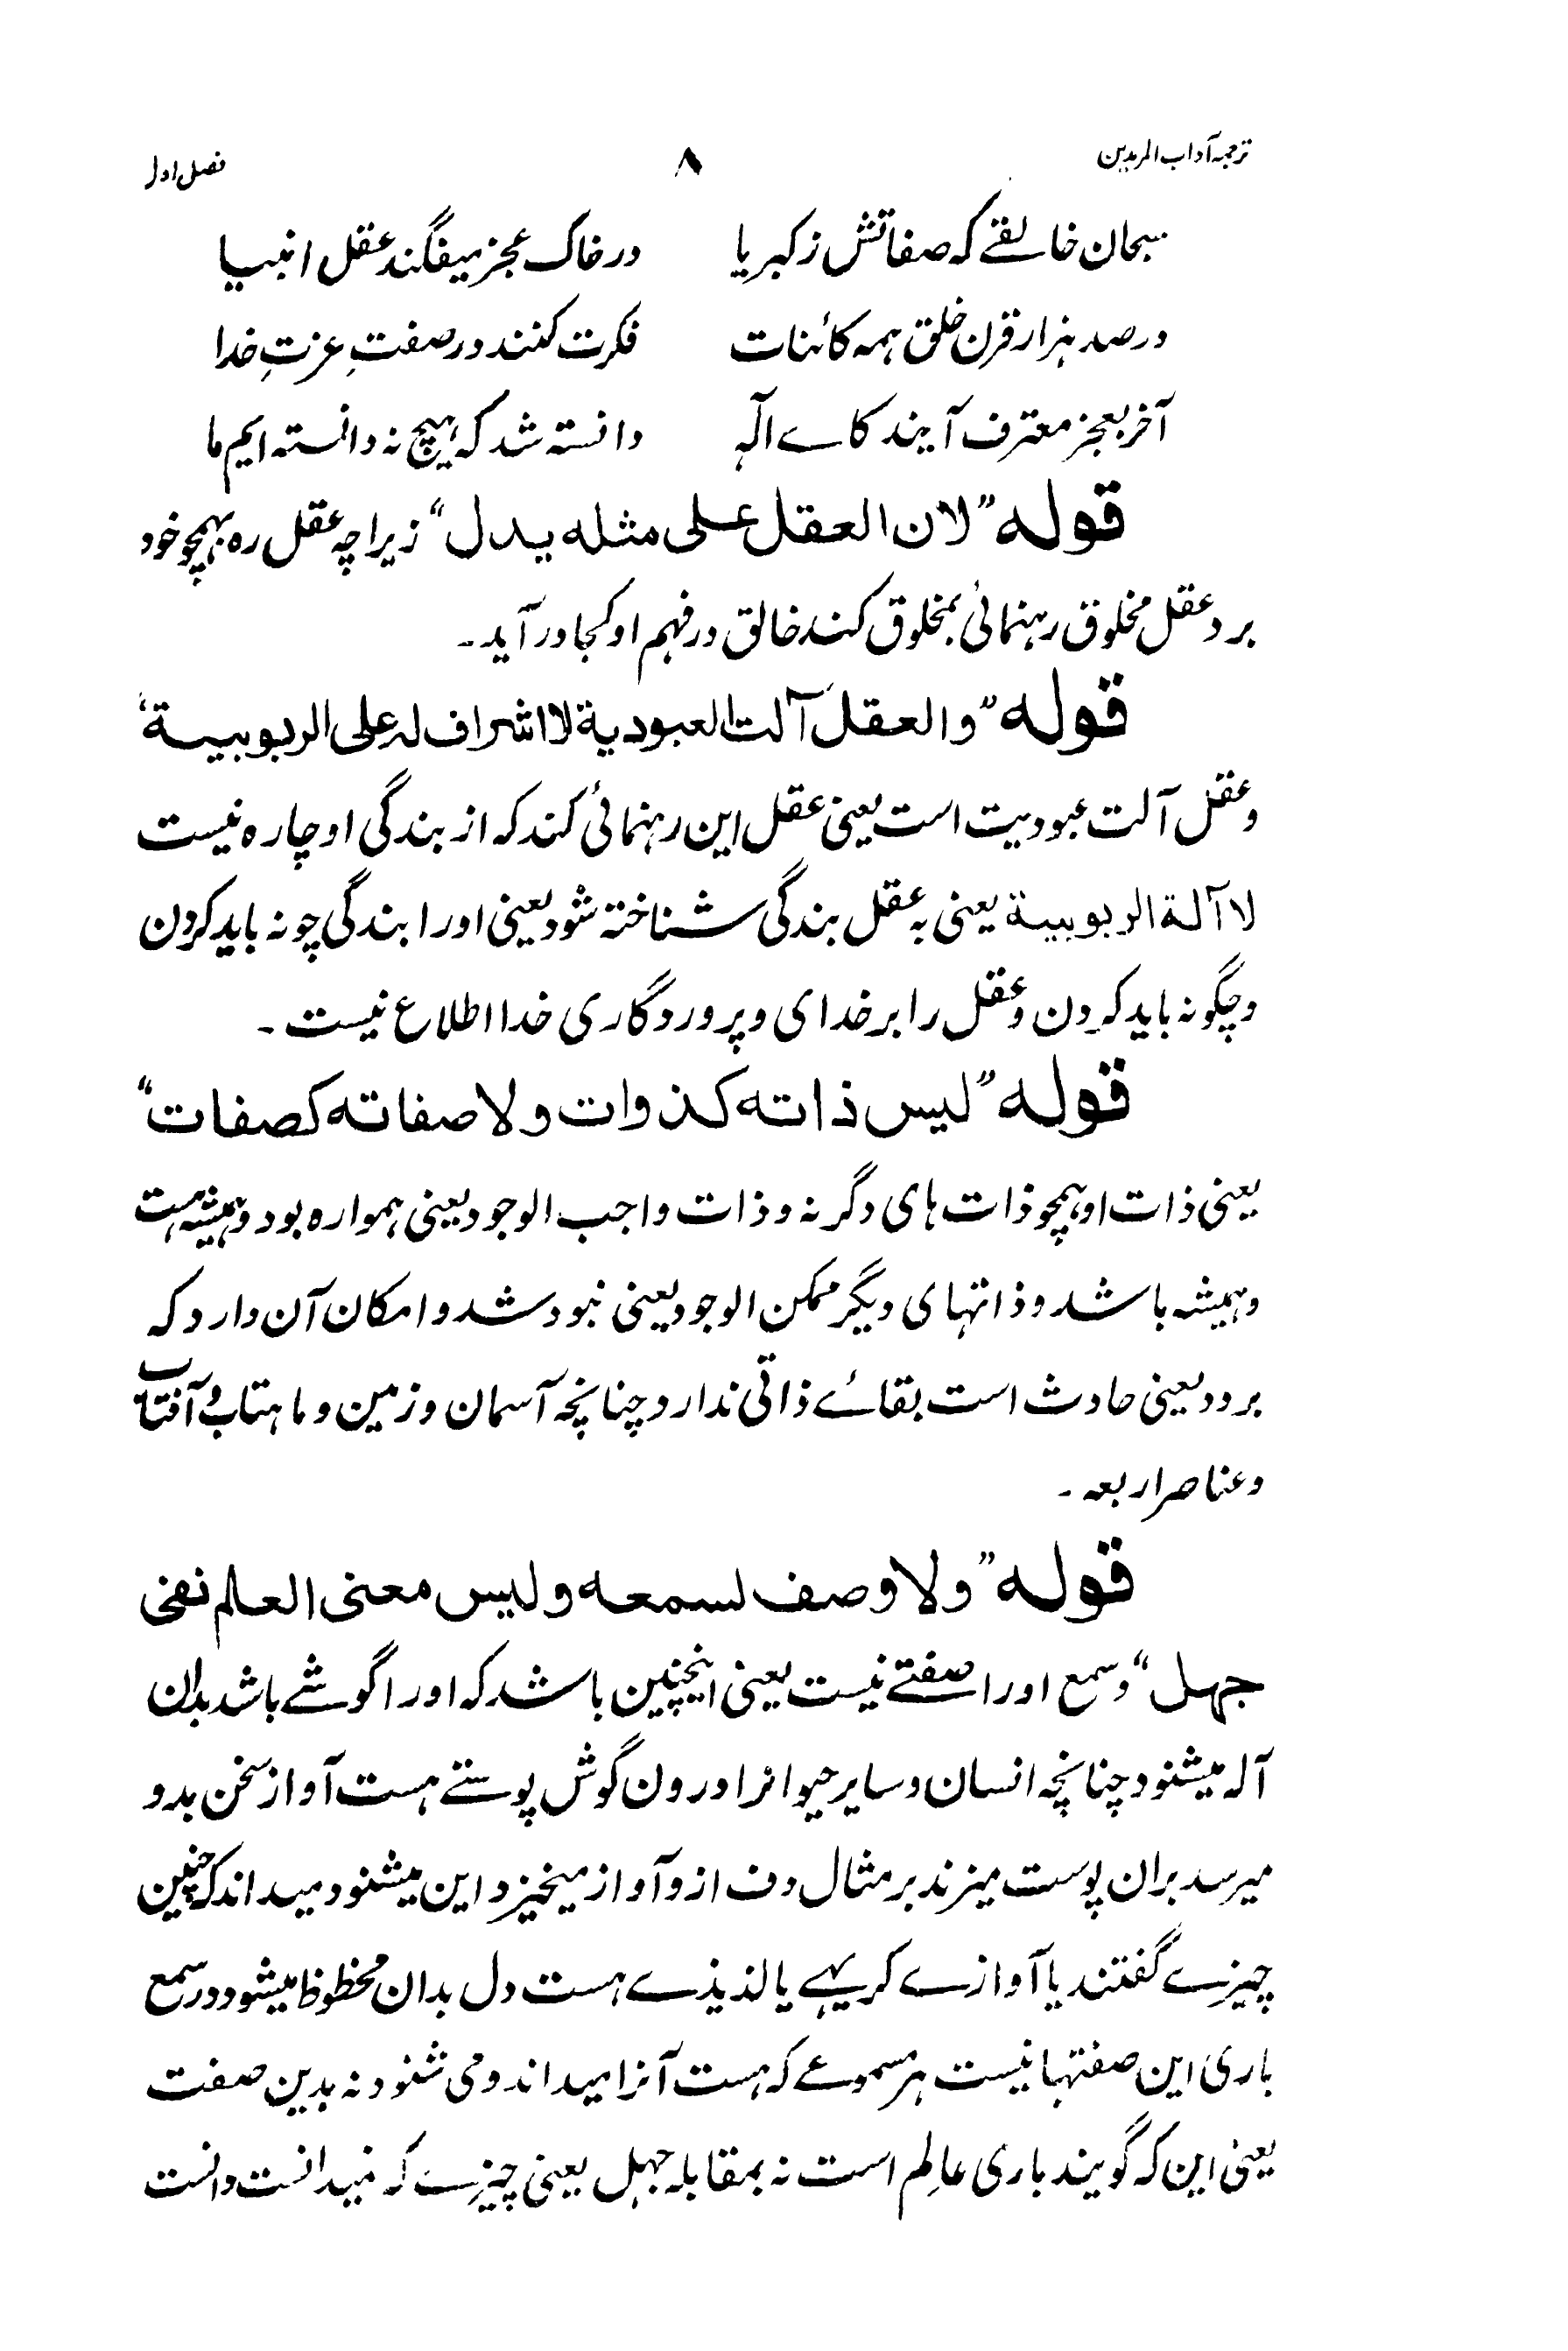 ترجمہ آداب المریدین ۸ فصل اول
سبحان خالقے کہ صفاتش زکبریا در خاک عجز میفگند عقل انبیا
در صد ہزار قرن خلق ہمہ کائنات فکرت کنند در صفتِ عزتِ خدا
آخر بعجز معترف آیند کاے الٰہ دانستہ شد کہ ہیچ نہ دانستہ ایم ما
قولہ ”لان العقل علی مثلہ یدل“ زیراچہ عقل رہ بہمچو خود
برد عقل مخلوق رہنمائی بمخلوق کند خالق در فہم او کجا در آید۔
قولہ ”والعقل آلت العبودیة لا اشراف لہ علی الربوبیة“
و عقل آلت عبودیت است یعنی عقل این رہنمائی کند کہ از بندگی او چارہ نیست
لا آلة الربوبیة یعنی بہ عقل بندگی شناختہ شود یعنی اورا بندگی چونہ باید کردن
و چگونہ باید کردن و عقل را بر خدای و پروردگاری خدا اطلاع نیست۔
قولہ ”لیس ذاتہ کذوات ولا صفاتہ کصفات“
یعنی ذات او ہمچو ذات ہای دگر نہ و ذات واجب الوجود یعنی ہموارہ بود و ہمیشہ ہست
و ہمیشہ باشد و ذاتہای دیگر ممکن الوجود یعنی نبود شد و امکان آن دارد کہ
برود یعنی حادث است بقائے ذاتی ندارد چنانچہ آسمان و زمین و ماہتاب و آفتاب
و عناصر اربعہ۔
قولہ ”ولا وصف لسمعہ ولیس معنی العلم نفی
جہل“ و سمع اورا صفتے نیست یعنی اینچنین باشد کہ اورا گوشے باشد بدان
آلہ میشنود چنانچہ انسان و سایر حیوانرا درون گوش پوستے ہست آواز سخن بدو
میرسد بران پوست میزند بر مثال دف ازو آواز میخیزد این میشنود میداند کہ چنین
چیزے گفتند یا آوازے کریہے یا لذیذے ہست دل بدان محظوظ میشود در سمع
باری این صفتہا نیست ہر مسموعے کہ ہست آنرا میداند و می شنود نہ بدین صفت
یعنی این کہ گویند باری عالِم است نہ بمقابلہ جہل یعنی چیزے کہ نمیدانست دانست